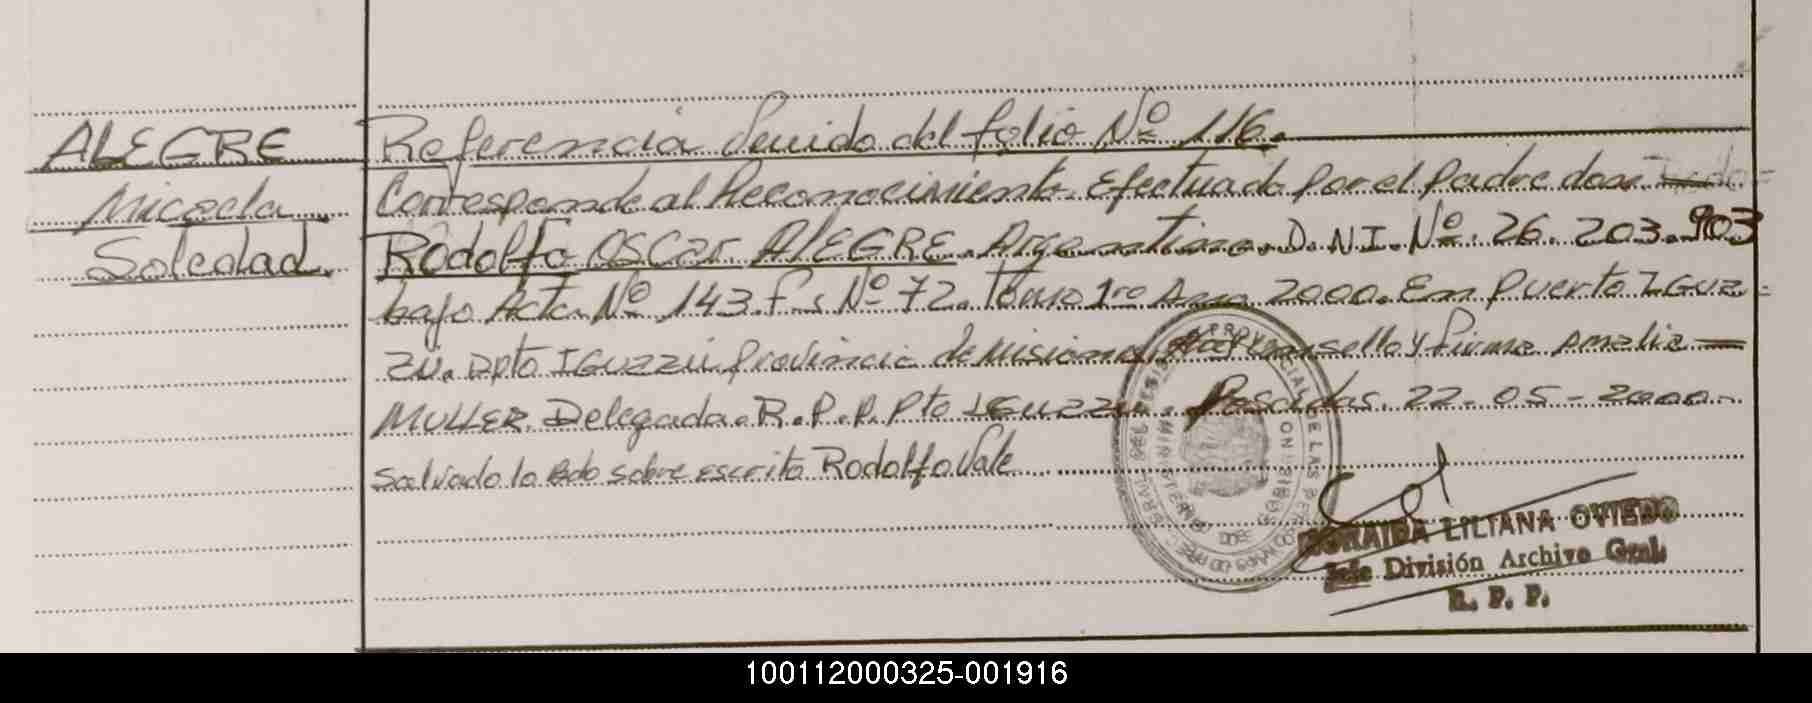 ALEGRE
Micaela
Soledad.
Referencia venido del folio Nº 116.
Corresponde al Reconocimiento. Efectuado por el padre don
Rodolfo Oscar ALEGRE. Argentino. D.N.I. Nº. 26.203.903
bajo Acta. Nº 143. Fs Nº 72. Tomo 1ro Año 2000. En Puerto Iguz-
zu. Dpto Iguzzú provincia de Misiones sello y firma Amalia
MULLER. Delegada. R.P.P. Pto Iguzzu. Posadas. 22-05-2000.
Salvado lo Bdo sobre escrito Rodolfo Vale
LILIANA OVIEDO
Jefe División Archivo Gral.
R. P. P.
100112000325-001916